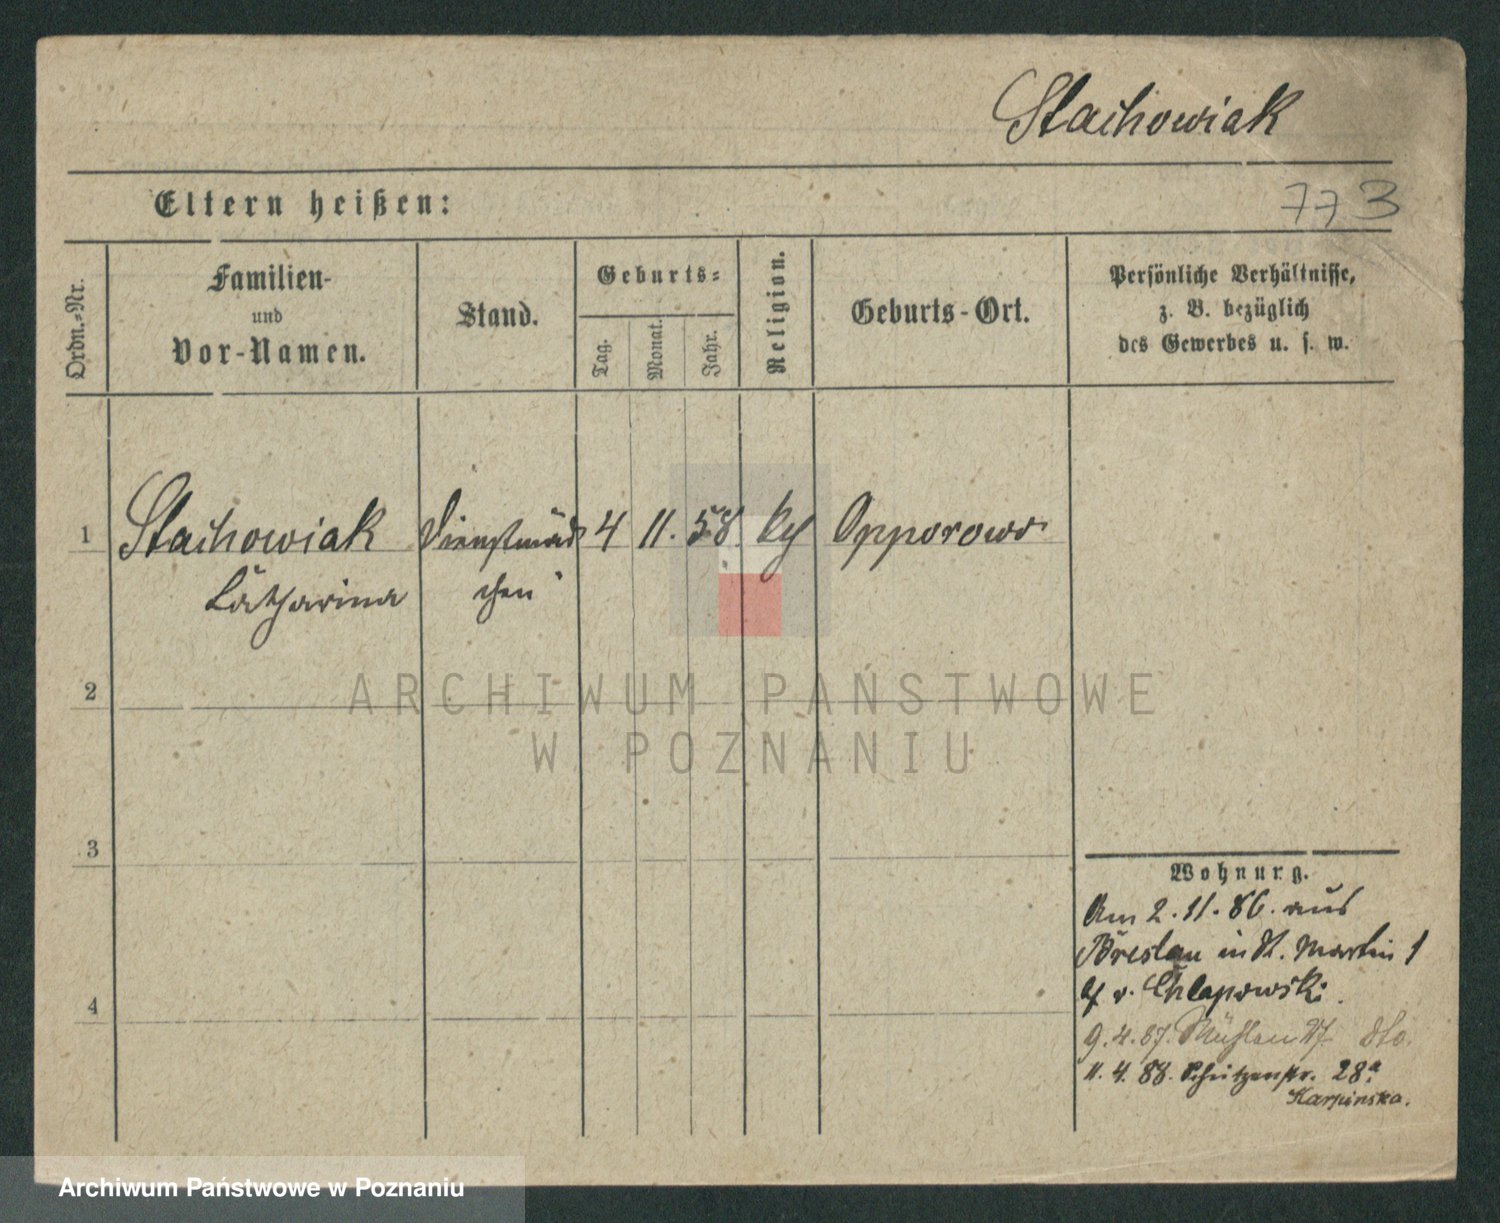 Stachowiak
773
Eltern heißen:
Ordn.-Nr.
Familien-
und
Vor-Namen.
Stand.
Geburts-
Tag.
Monat.
Jahr.
Religion.
Geburts-Ort.
Persönliche Verhältnisse,
z. B. bezüglich
des Gewerbes u. s. w.
1 Stachowiak Dienstmäd 4 11. 58. Opporowo
Catharina chen
2
ARCHIWUM PAŃSTWOWE
W POZNANIU
3
Wohnung.
Am 2.11.86. aus
Breslau in St. Martin 1
v. Chlapowski.
4
9.4.87. Mühlen dto.
11.4.88. Schützenstr. 28a
Karpinska.
Archiwum Państwowe w Poznaniu